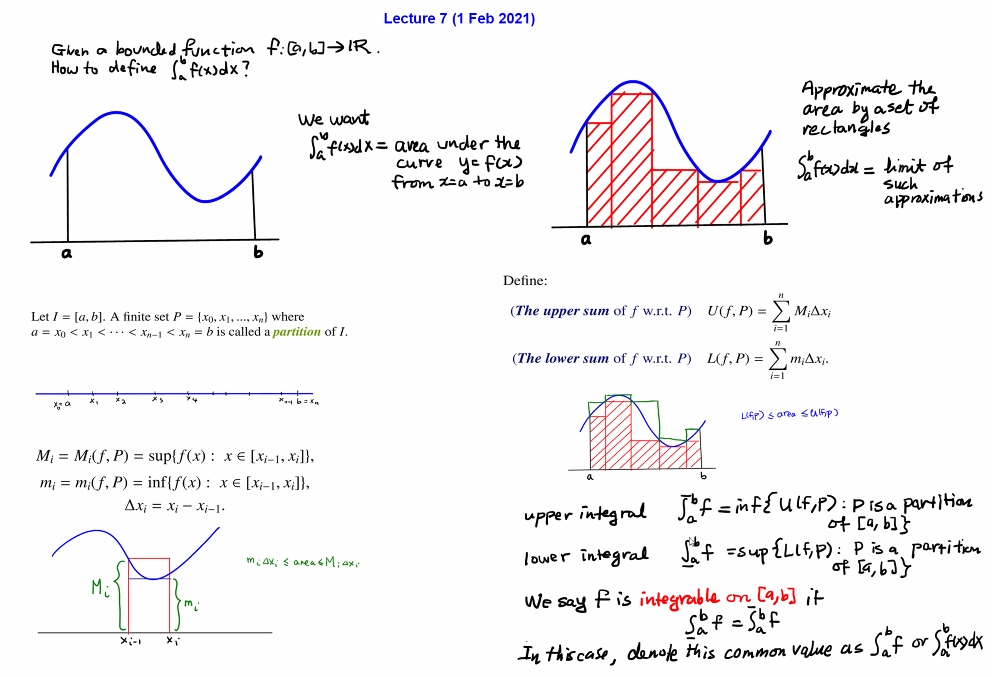 Lecture 7 (1 Feb 2021)
Given a bounded function f: [a,b] → ℝ.
How to define ∫_a^b f(x)dx?
a
b
We want
∫_a^b f(x)dx = area under the
curve y=f(x)
from x=a to x=b
a
b
Approximate the
area by a set of
rectangles
∫_a^b f(x)dx = limit of
such
approximations
Let I = [a, b]. A finite set P = {x_0, x_1, ..., x_n} where
a = x_0 < x_1 < ⋯ < x_{n−1} < x_n = b is called a partition of I.
x_0=a x_1 x_2 x_3 x_4 x_{n-1} b=x_n
M_i = M_i(f, P) = sup{f(x) : x ∈ [x_{i−1}, x_i]},
m_i = m_i(f, P) = inf{f(x) : x ∈ [x_{i−1}, x_i]},
Δx_i = x_i − x_{i−1}.
M_i
m_i
x_{i-1} x_i
m_i Δx_i ≤ area ≤ M_i Δx_i
Define:
(The upper sum of f w.r.t. P) U(f, P) = ∑_{i=1}^n M_iΔx_i
(The lower sum of f w.r.t. P) L(f, P) = ∑_{i=1}^n m_iΔx_i.
a
b
L(f,P) ≤ area ≤ U(f,P)
upper integral ∫̄_a^b f = inf{ U(f,P) : P is a partition
of [a,b]}
lower integral ∫̲_a^b f = sup{L(f,P) : P is a partition
of [a,b]}
We say f is integrable on [a,b] if
∫̲_a^b f = ∫̄_a^b f
In this case, denote this common value as ∫_a^b f or ∫_a^b f(x)dx